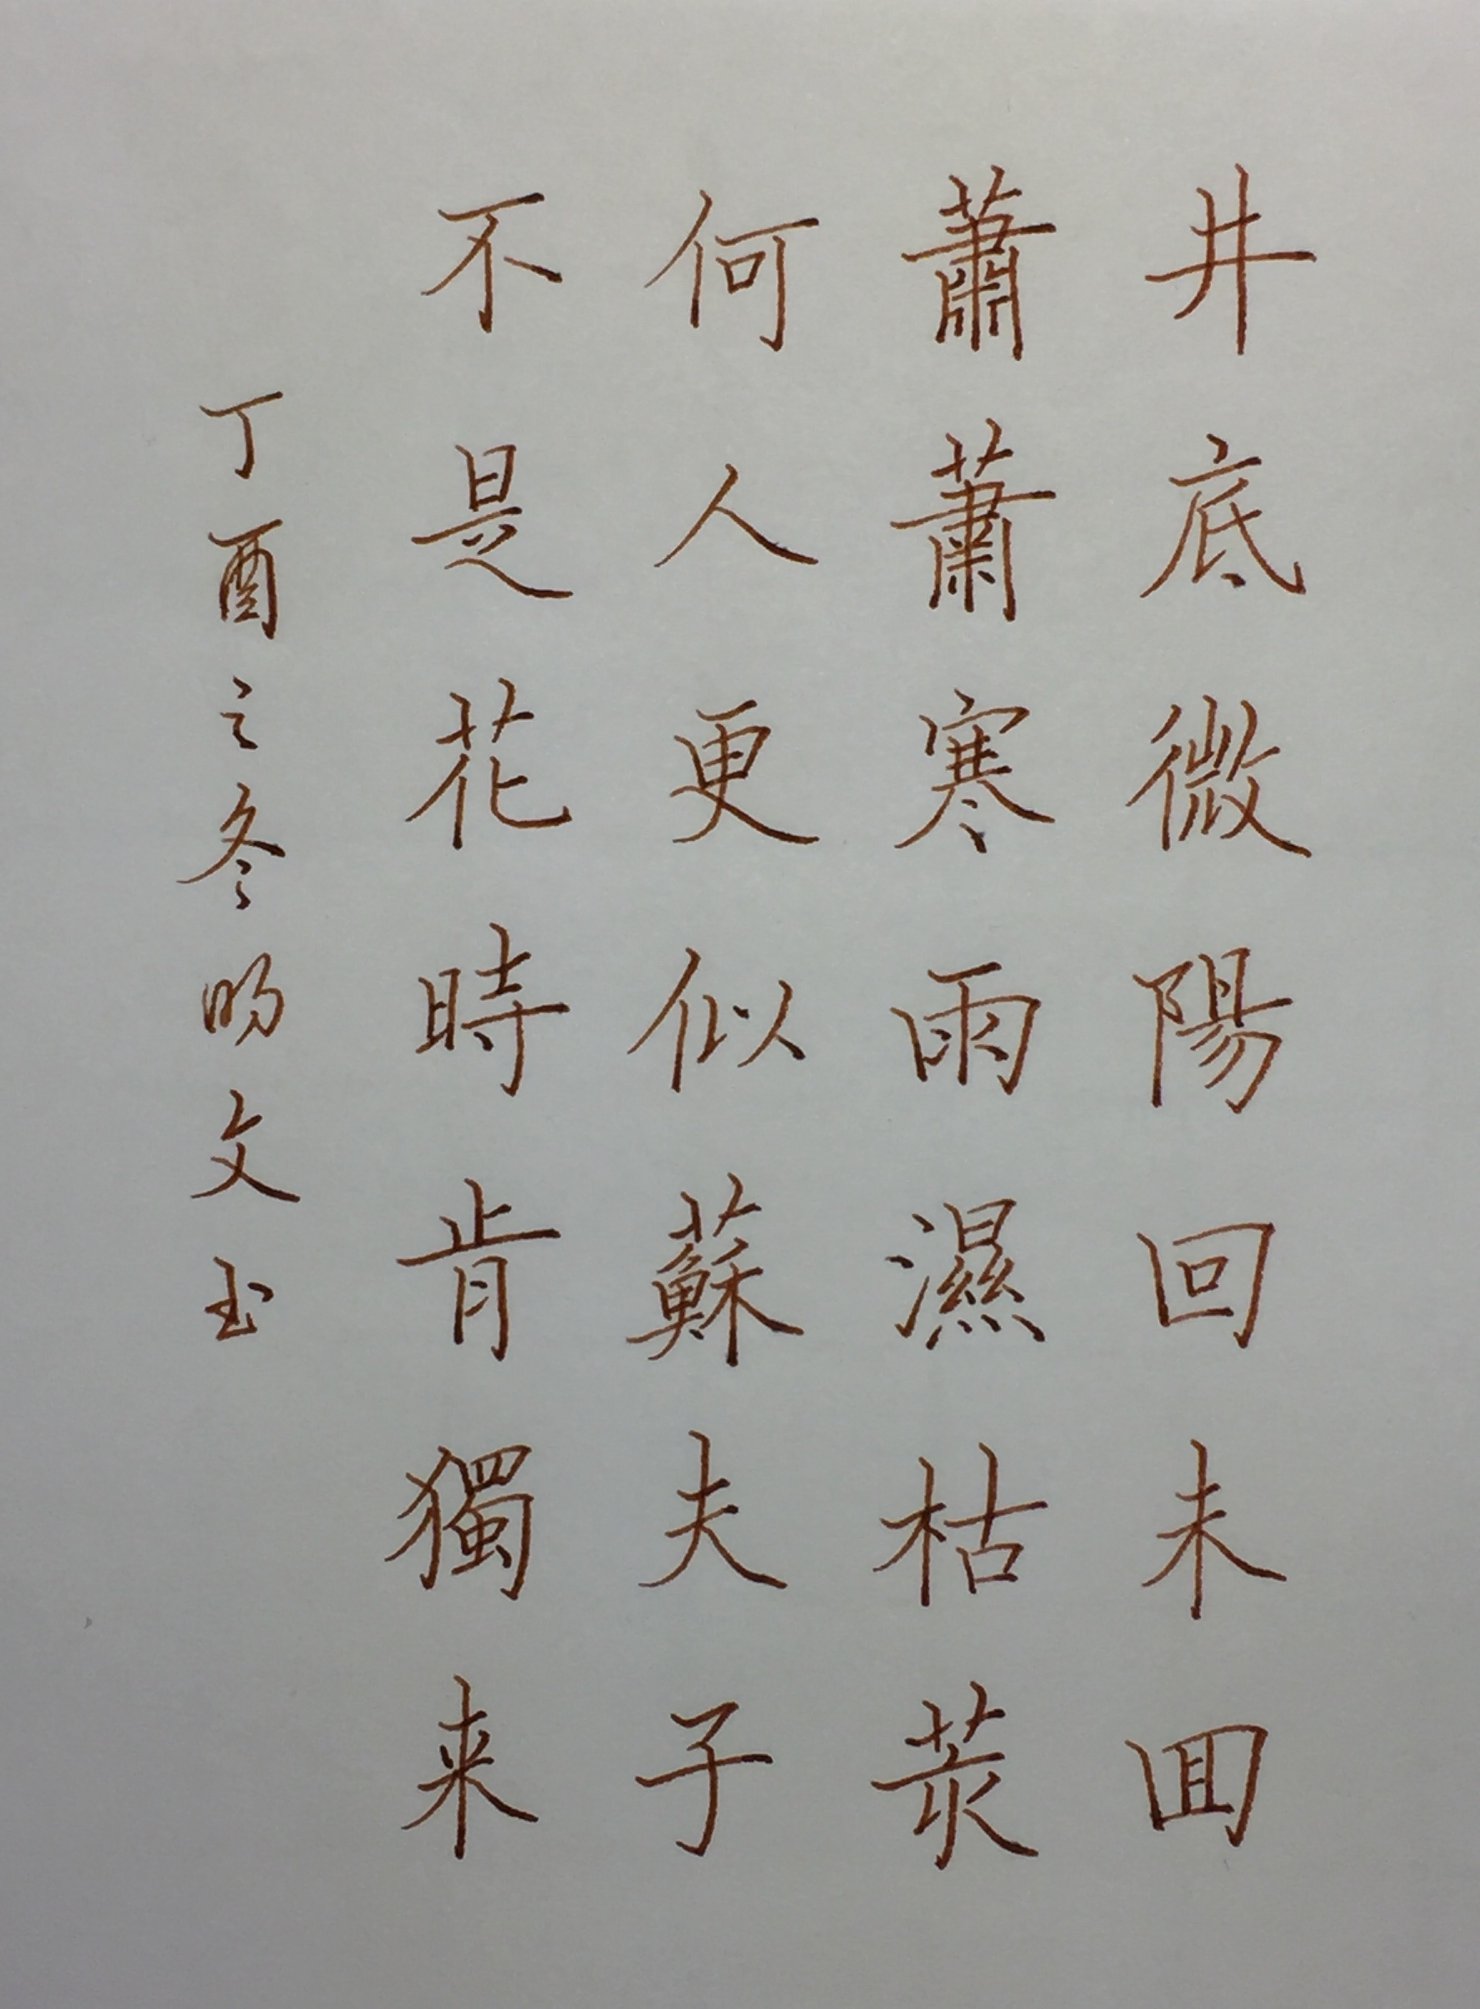 井底微陽回未囬
蕭蕭寒雨濕枯荄
何人更似蘇夫子
不是花時肯獨来
丁酉之冬旸文书